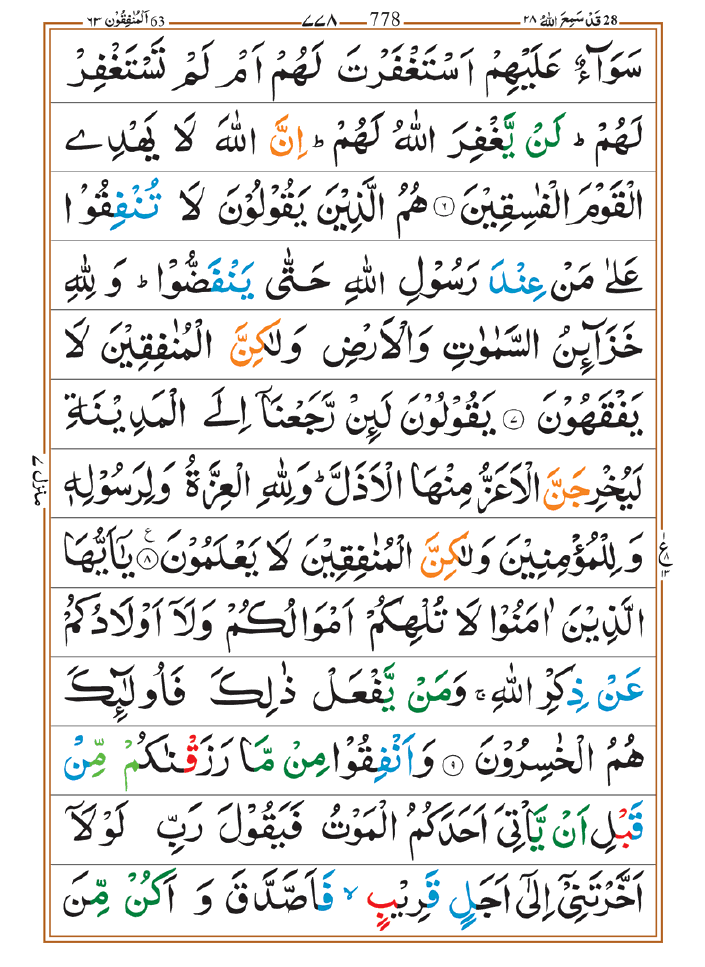 28 قَدْ سَمِعَ اللهُ ٢٨ 778 ٧٧٨ 63 اَلْمُنٰفِقُوْن ٦٣
سَوَآءٌ عَلَيْهِمْ اَسْتَغْفَرْتَ لَهُمْ اَمْ لَمْ تَسْتَغْفِرْ
لَهُمْ ؕ لَنْ يَّغْفِرَ اللهُ لَهُمْ ؕ اِنَّ اللهَ لَا يَهْدِے
الْقَوْمَ الْفٰسِقِيْنَ ٦ هُمُ الَّذِيْنَ يَقُوْلُوْنَ لَا تُنْفِقُوْا
عَلٰے مَنْ عِنْدَ رَسُوْلِ اللهِ حَتّٰى يَنْفَضُّوْا ؕ وَ لِلّٰهِ
خَزَآئِنُ السَّمٰوٰتِ وَالْاَرْضِ وَلٰكِنَّ الْمُنٰفِقِيْنَ لَا
يَفْقَهُوْنَ ٧ يَقُوْلُوْنَ لَئِنْ رَّجَعْنَاۤ اِلَے الْمَدِيْنَةِ
لَيُخْرِجَنَّ الْاَعَزُّ مِنْهَا الْاَذَلَّ ؕ وَلِلّٰهِ الْعِزَّةُ وَلِرَسُوْلِهٖ
منزل ٧
وَ لِلْمُؤْمِنِيْنَ وَلٰكِنَّ الْمُنٰفِقِيْنَ لَا يَعْلَمُوْنَ ٨ ع يٰۤاَيُّهَا
ع ٨ ١٣
الَّذِيْنَ اٰمَنُوْا لَا تُلْهِكُمْ اَمْوَالُكُمْ وَلَاۤ اَوْلَادُكُمْ
عَنْ ذِكْرِ اللهِ ۚ وَمَنْ يَّفْعَلْ ذٰلِكَ فَاُولٰٓئِكَ
هُمُ الْخٰسِرُوْنَ ٩ وَاَنْفِقُوْا مِنْ مَّا رَزَقْنٰكُمْ مِّنْ
قَبْلِ اَنْ يَّاْتِىَ اَحَدَكُمُ الْمَوْتُ فَيَقُوْلَ رَبِّ لَوْلَاۤ
اَخَّرْتَنِىْۤ اِلٰٓى اَجَلٍ قَرِيْبٍ ۙ فَاَصَّدَّقَ وَ اَكُنْ مِّنَ